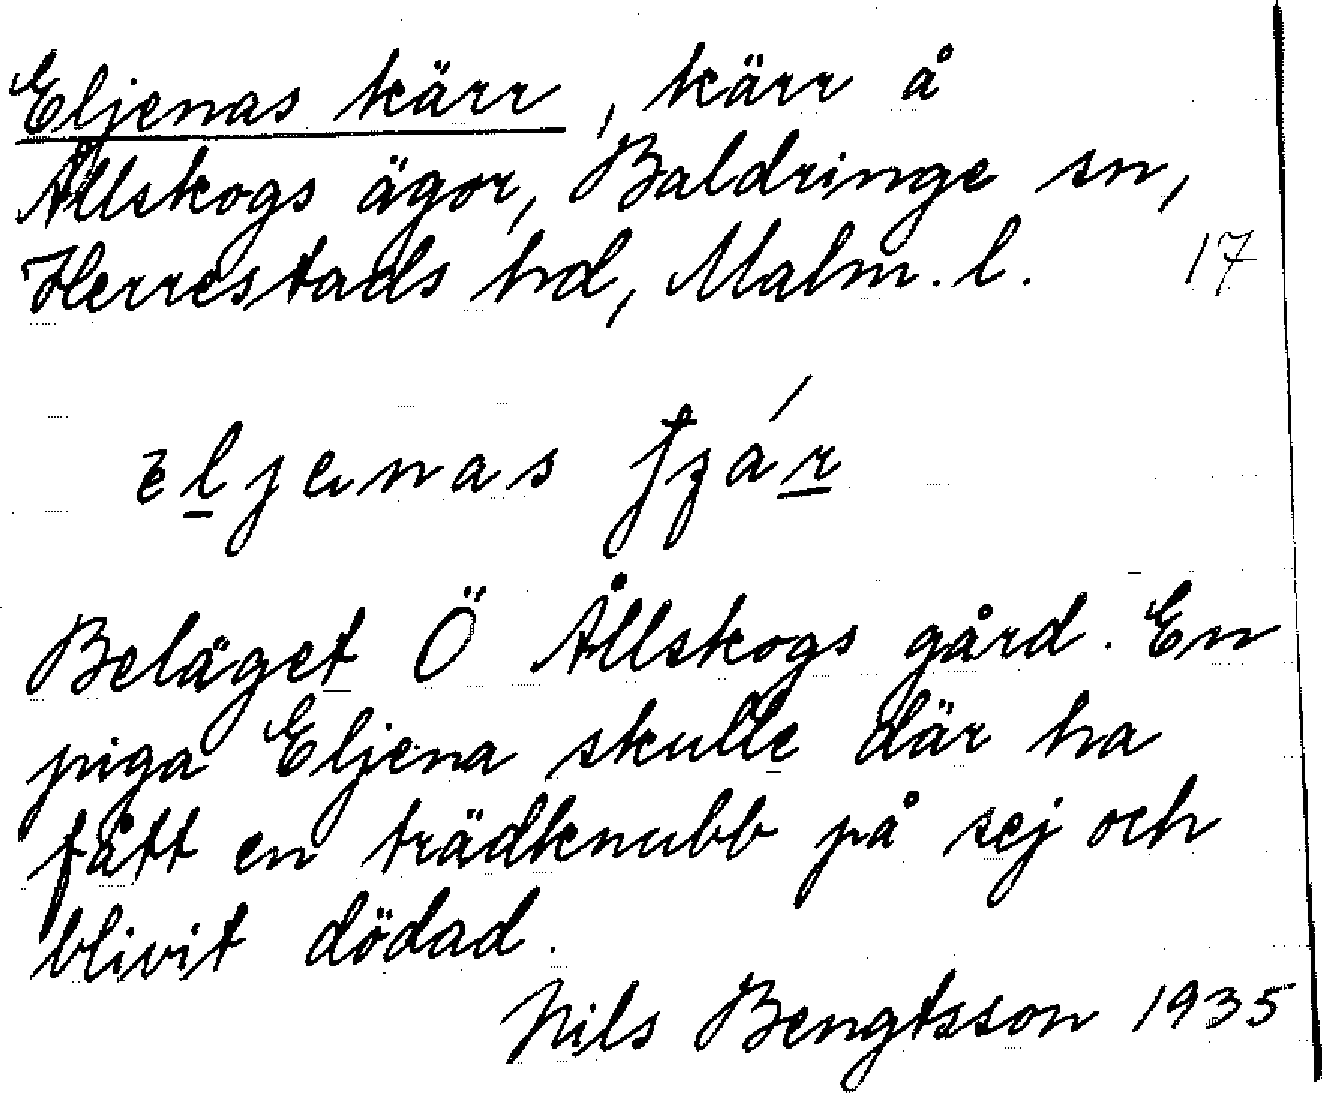 Eljenas kärr, kärr å
Ållskogs ägor, Baldringe sn,
Herrestads hd, Malm. l. 17
Beläget Ö Ållskogs gård. En
piga Eljena skulle där ha
fått en trädknubb på sej och
blivit dödad.
Nils Bengtsson 1935